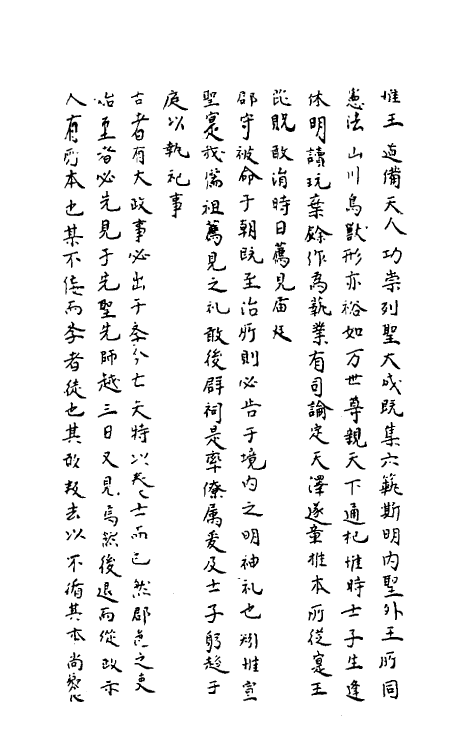 惟王道備天人功崇列聖大成既集六藝斯明内聖外王所同
憲法山川鳥獸形亦裕如万世尊親天下通祀惟時士子生逢
休明讀玩棄餘作為藝業有司論定天澤遂章推本所從寔王
貺敢涓時日薦見庙廷
郡守被命于朝既至治所則必告于境内之明神礼也矧惟宣
聖寔我儒祖薦見之礼敢後群祠是率僚属爰及士子躬趍于
庭以執祀事
古者有大政事必出于亡矣特以士而已然郡邑之吏
始至者必先見于先聖先師越三日又見焉然後退而從政示
人有所本也某不佞而李者徒也其敢去以不循其本尚